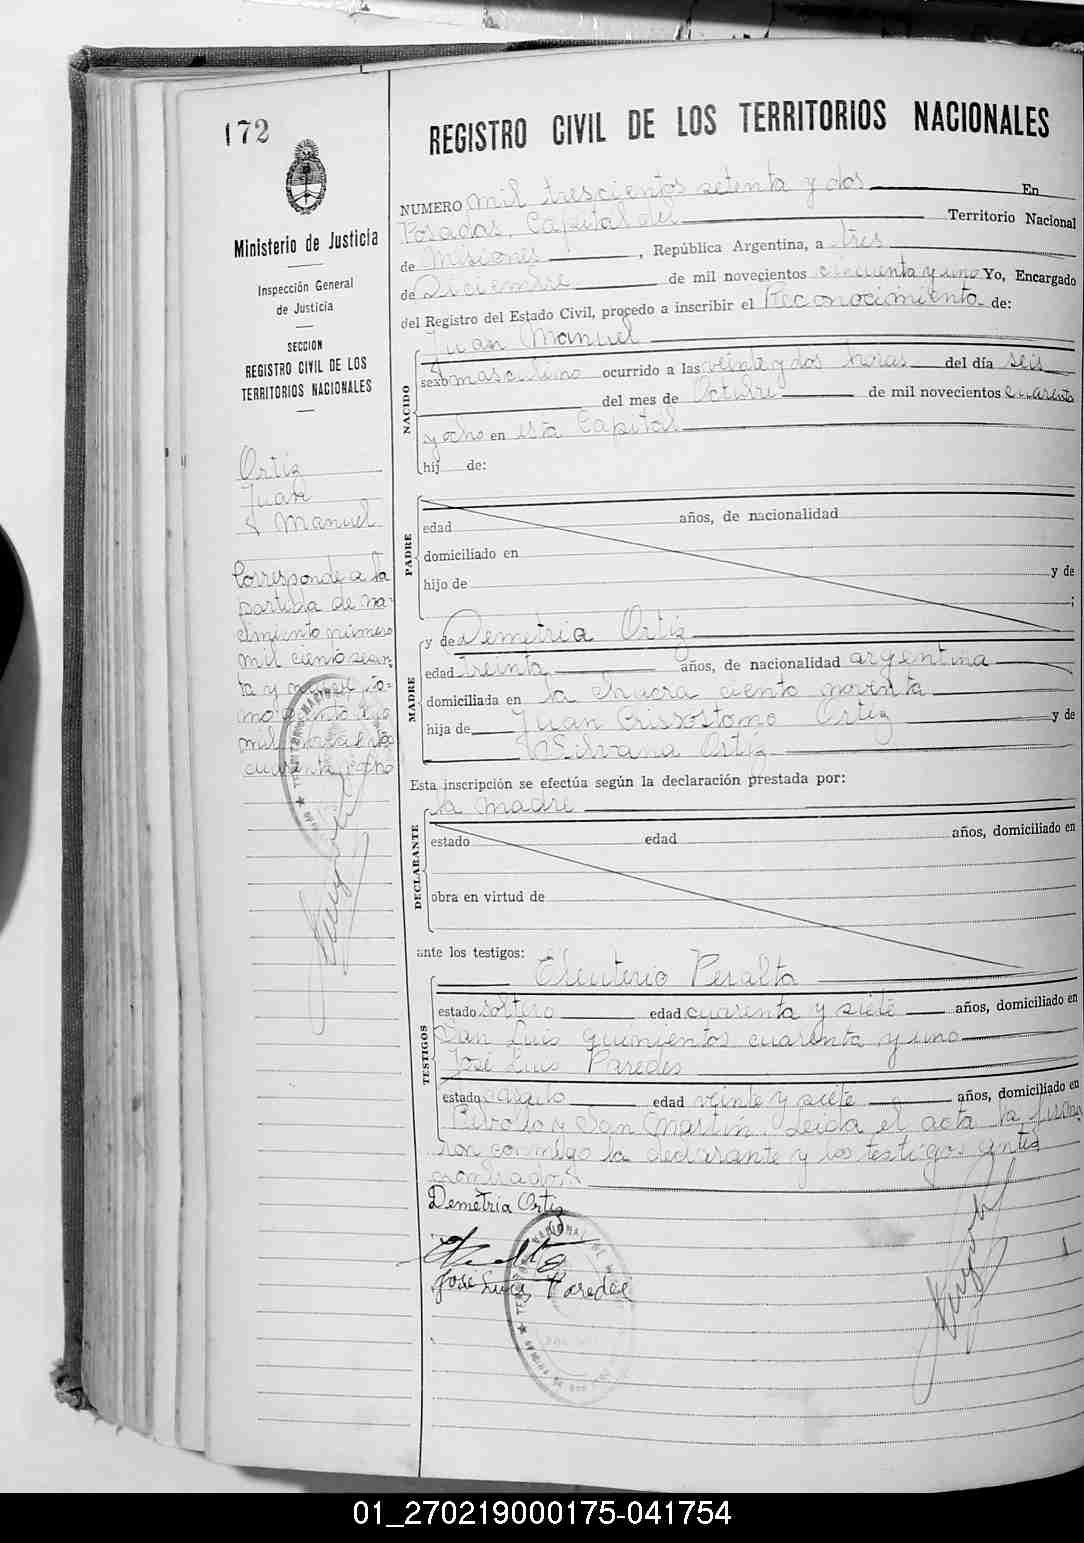 172
Ministerio de Justicia
Inspección General
de Justicia
SECCION
REGISTRO CIVIL DE LOS
TERRITORIOS NACIONALES
Ortiz
Juan
Manuel
Corresponde a la
partida de na-
cimiento número
mil ciento sesen-
ta y nueve to-
mo
mil
cuarenta y ocho
REGISTRO CIVIL DE LOS TERRITORIOS NACIONALES
NUMERO mil trescientos setenta y dos En
Posadas, Capital del Territorio Nacional
de Misiones, República Argentina, a tres
de Diciembre de mil novecientos cincuenta y uno Yo, Encargado
del Registro del Estado Civil, procedo a inscribir el Reconocimiento de:
Juan Manuel
NACIDO
sexo masculino ocurrido a las veinte y dos horas del día seis
del mes de Octubre de mil novecientos cuarenta
y ocho en esta Capital
hij de:
PADRE
edad años, de nacionalidad
domiciliado en
hijo de y de
;
y de Demetria Ortiz
MADRE
edad treinta años, de nacionalidad argentina
domiciliada en la chacra ciento noventa
hija de Juan Crissostomo Ortiz y de
Silvana Ortiz
Esta inscripción se efectúa según la declaración prestada por:
la madre
DECLARANTE
estado edad años, domiciliado en
obra en virtud de
ante los testigos: Eleuterio Peralta
TESTIGOS
estado soltero edad cuarenta y siete años, domiciliado en
San Luis quinientos cuarenta y uno
José Luis Paredes
estado casado edad veinte y siete años, domiciliado en
San Martin. Leida el acta la firma
ron conmigo la declarante y los testigos ante
nombrados
Demetria Ortiz
Jose Luis Paredes
01_270219000175-041754